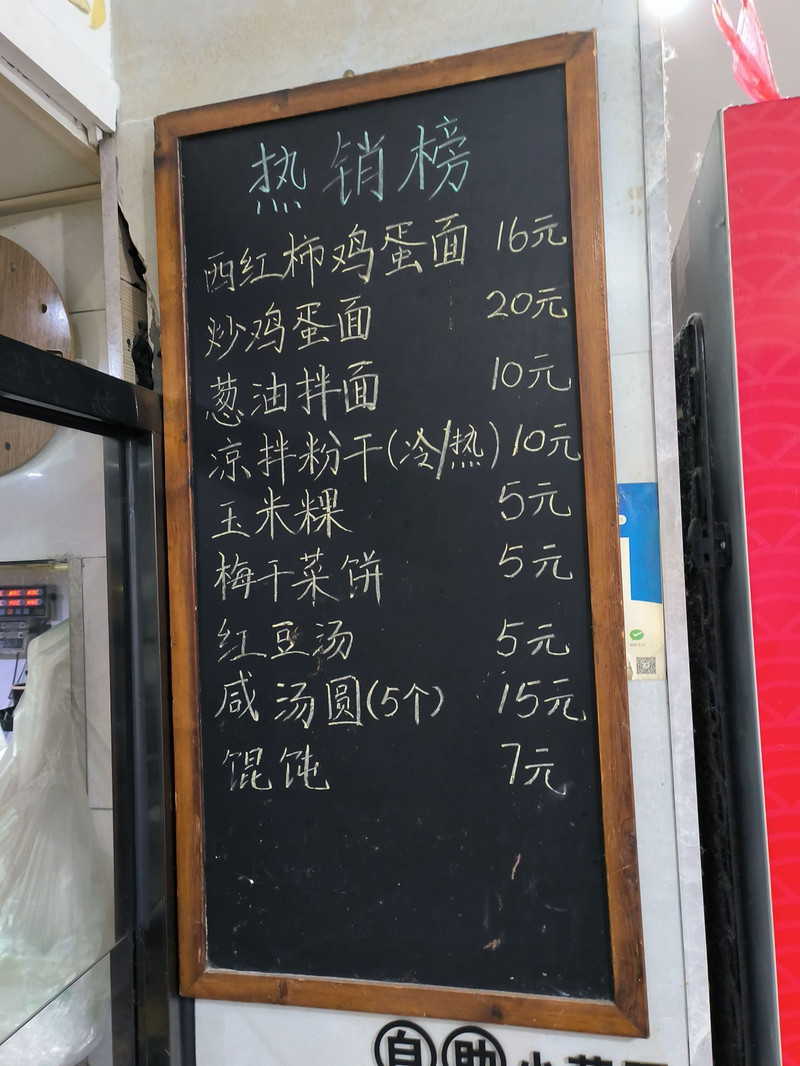 热销榜
西红柿鸡蛋面 16元
炒鸡蛋面 20元
葱油拌面 10元
凉拌粉干(冷/热) 10元
玉米粿 5元
梅干菜饼 5元
红豆汤 5元
咸汤圆(5个) 15元
馄饨 7元
自助